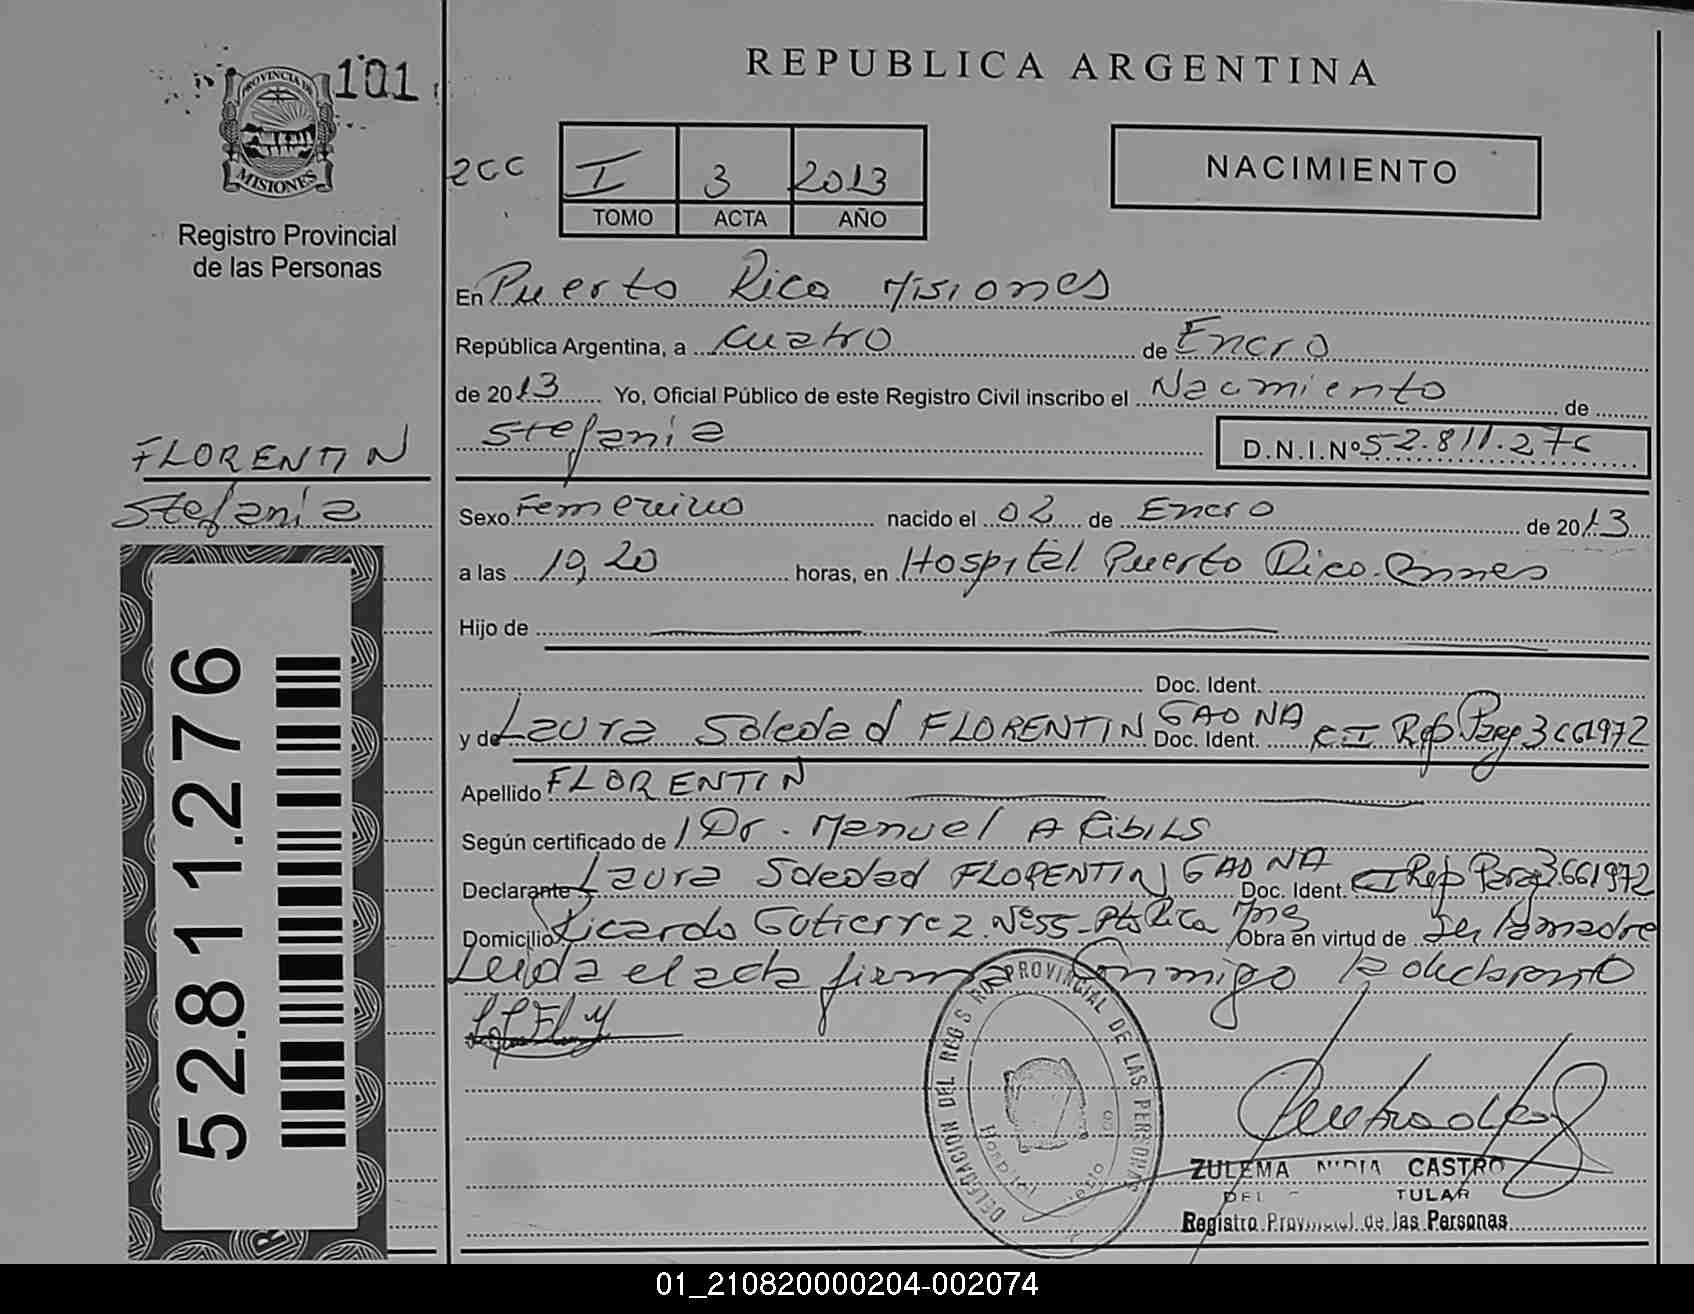 101
PROVINCIA DE
MISIONES
Registro Provincial
de las Personas
REPUBLICA ARGENTINA
2CC
I 3 2013
TOMO ACTA AÑO
NACIMIENTO
En Puerto Rico Misiones
República Argentina, a cuatro de Enero
de 2013 Yo, Oficial Público de este Registro Civil inscribo el Nacimiento de
Stefania
D.N.I.Nº 52.811.276
FLORENTIN
Stefania
52.811.276
Sexo Femenino nacido el 02 de Enero de 2013
a las 19,20 horas, en Hospital Puerto Rico
Hijo de
Doc. Ident.
y de Laura Soledad FLORENTIN GAONA Doc. Ident. CI Rep Parg 3661972
Apellido FLORENTIN
Según certificado de Dr. Manuel A Cibils
Declarante Laura Soledad FLORENTIN GAONA Doc. Ident. CI Rep Parag 3.661972
Domicilio Ricardo Gutierrez Nº55 - Pto Rico Mns Obra en virtud de Ser la madre
Leida el acta firma conmigo la declarante
DELEGACION DEL REG PROVINCIAL DE LAS PERSONAS
Hospital
ZULEMA NIDIA CASTRO
DEL TULAR
Registro Provincial de las Personas
01_210820000204-002074